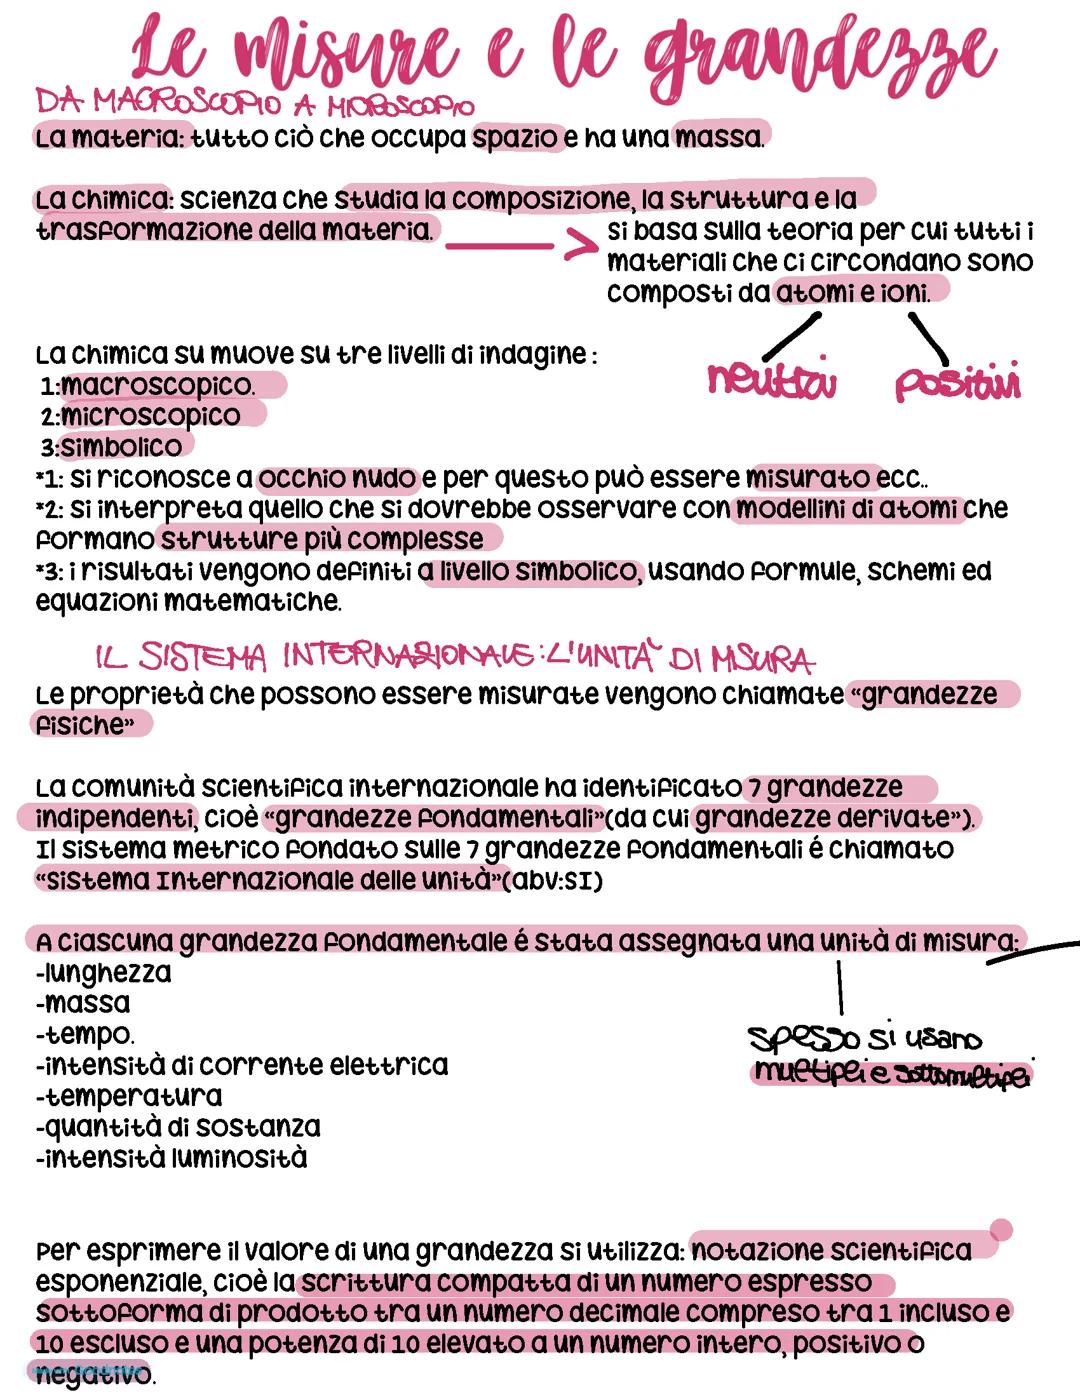 Le misure e le grandezze
DA MACROSCOPIO A MICROSCOPIO
La materia: tutto ciò che occupa spazio e ha una massa.
La chimica: scienza che studia la composizione, la struttura e la
trasformazione della materia.
si basa sulla teoria per cui tutti i
materiali che ci circondano sono
composti da atomi e ioni.
neutri positivi
La chimica su muove su tre livelli di indagine:
1:macroscopico.
2:microscopico
3:simbolico
*1: si riconosce a occhio nudo e per questo può essere misurato ecc..
*2: si interpreta quello che si dovrebbe osservare con modellini di atomi che
formano strutture più complesse
*3: i risultati vengono definiti a livello simbolico, usando formule, schemi ed
equazioni matematiche.
IL SISTEMA INTERNAZIONALE: L'UNITÀ DI MISURA
Le proprietà che possono essere misurate vengono chiamate “grandezze
fisiche”
La comunità scientifica internazionale ha identificato 7 grandezze
indipendenti, cioè “grandezze fondamentali”(da cui grandezze derivate”).
Il sistema metrico fondato sulle 7 grandezze fondamentali é chiamato
“Sistema Internazionale delle unità”(abv:SI)
A ciascuna grandezza fondamentale é stata assegnata una unità di misura:
-lunghezza
-massa
-tempo.
-intensità di corrente elettrica
-temperatura
-quantità di sostanza
-intensità luminosità
spesso si usano
multipli e sottomultipli
Per esprimere il valore di una grandezza si utilizza: notazione scientifica
esponenziale, cioè la scrittura compatta di un numero espresso
sottoforma di prodotto tra un numero decimale compreso tra 1 incluso e
10 escluso e una potenza di 10 elevato a un numero intero, positivo o
negativo.